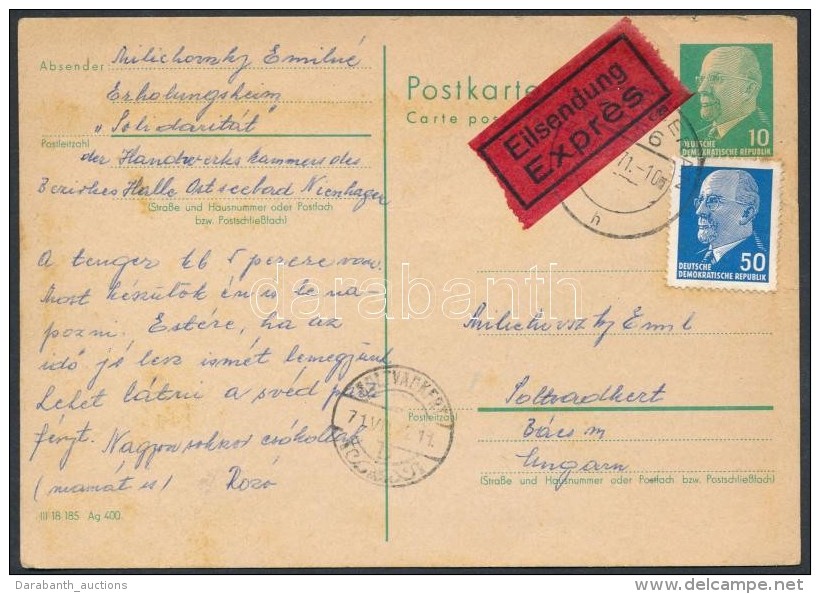 Absender Milichovszky Emilné
Erholungsheim
"Solidarität"
Postleitzahl
der Handwerkskammer des
Bezirkes Halle Ostseebad Nienhagen
(Straße und Hausnummer oder Postfach
bzw. Postschließfach)
A tenger kb 5 percre van.
Most készülök én is le na-
pozni. Estére, ha az
idő jó lesz ismét lemegyünk
Lehet látni a svéd
fényt. Nagyon sokszor csókollak
(mamát is) Rozó
III 18 185 Ag 400
Postkarte
Carte pos
Eilsendung
Exprès
71.-10
h
10
DEUTSCHE
DEMOKRATISCHE REPUBLIK
50
DEUTSCHE
DEMOKRATISCHE REPUBLIK
Milichovszky Emil
Soltvadkert
Postleitzahl
Bács m
Ungarn
(Straße und Hausnummer oder Postfach bzw. Postschließfach)
SOLTVADKERT
darabanth
Darabanth_auctions
delcampe.net